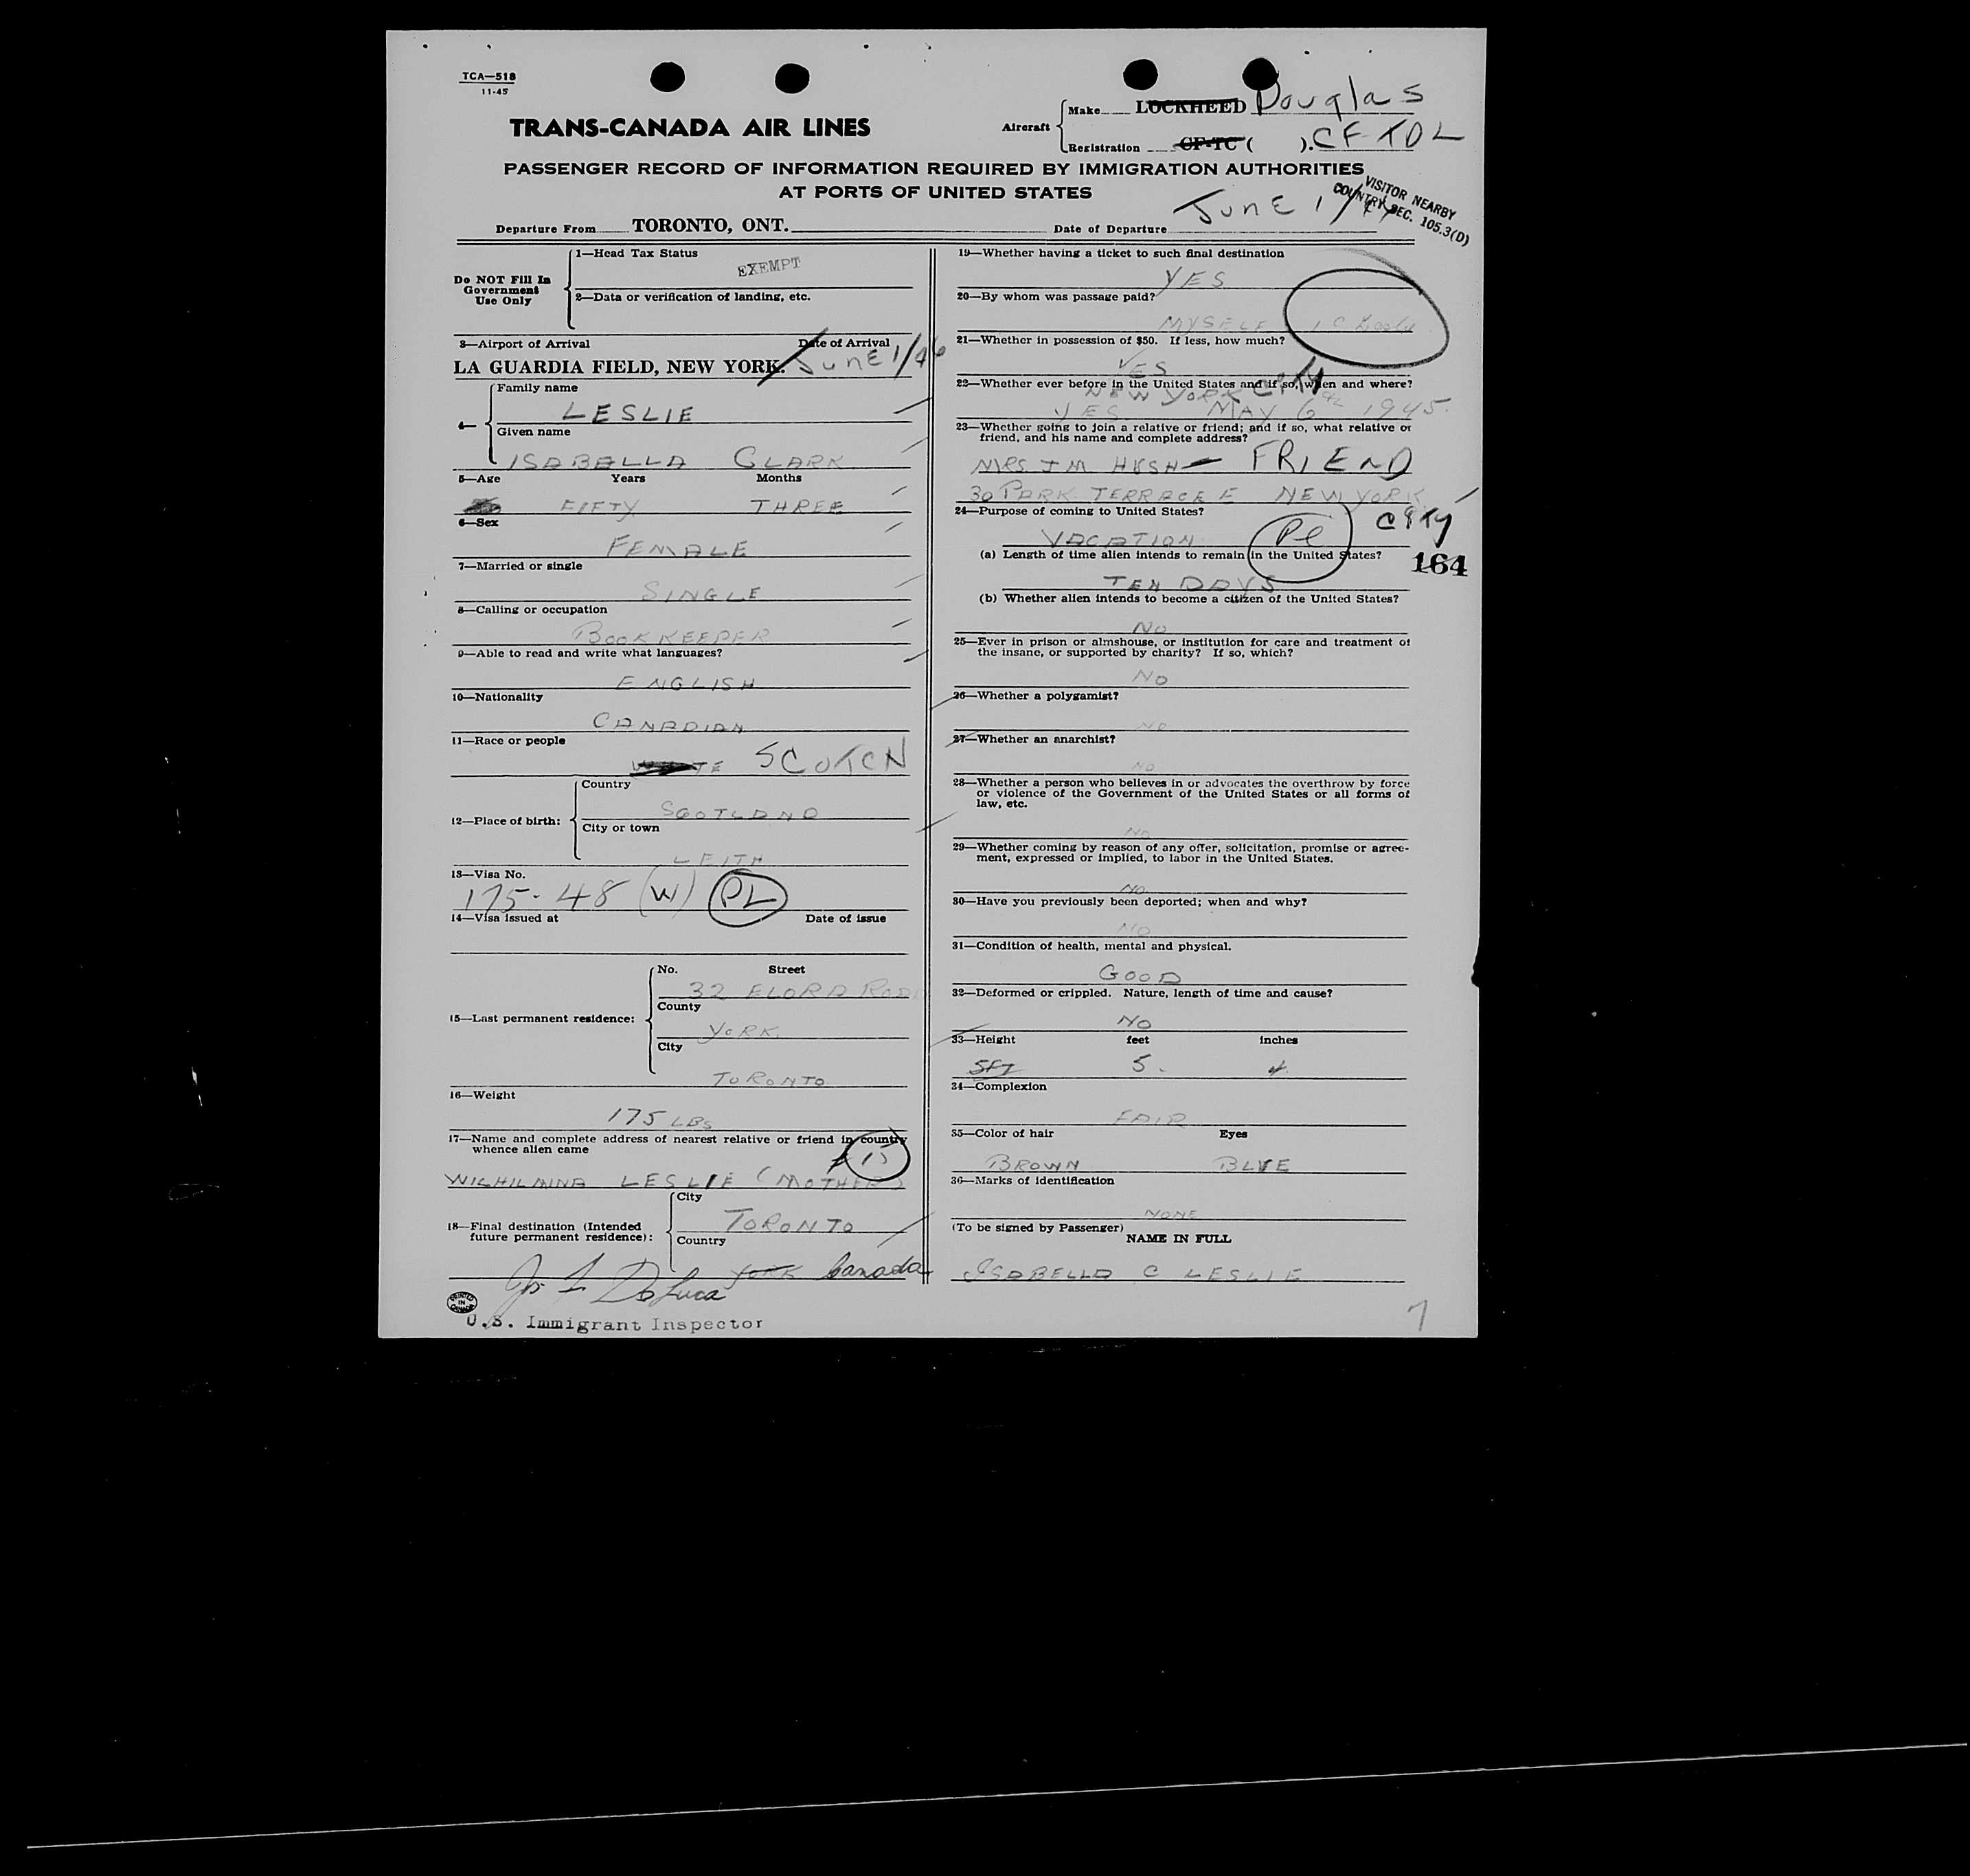 TCA—518
11-45
TRANS-CANADA AIR LINES
Aircraft
Make LOCKHEED Douglas
Registration CF-TC ( ). CF-TDL
PASSENGER RECORD OF INFORMATION REQUIRED BY IMMIGRATION AUTHORITIES
AT PORTS OF UNITED STATES
VISITOR NEARBY
COUNTRY SEC. 105.3(D)
Departure From TORONTO, ONT.
Date of Departure JUNE 1/
Do NOT Fill In
Government
Use Only
1—Head Tax Status
EXEMPT
2—Data or verification of landing, etc.
3—Airport of Arrival Date of Arrival
LA GUARDIA FIELD, NEW YORK. JUNE 1/46
4—
Family name
LESLIE
Given name
ISABELLA CLARK
5—Age Years Months
FIFTY THREE
6—Sex
FEMALE
7—Married or single
SINGLE
8—Calling or occupation
BOOKKEEPER
9—Able to read and write what languages?
ENGLISH
10—Nationality
CANADIAN
11—Race or people
SCOTCH
12—Place of birth:
Country
SCOTLAND
City or town
LEITH
13—Visa No.
175-48 (W) PL
14—Visa issued at Date of issue
15—Last permanent residence:
No. Street
32 ELORA ROAD
County
YORK
City
TORONTO
16—Weight
175 LBS
17—Name and complete address of nearest relative or friend in country
whence alien came
15
WILHILMINA LESLIE (MOTHER)
18—Final destination (Intended
future permanent residence):
City
TORONTO
Country
YORK Canada
Jos F DeLuca
PRINTED IN CANADA
U.S. Immigrant Inspector
19—Whether having a ticket to such final destination
YES
20—By whom was passage paid?
MYSELF
21—Whether in possession of $50. If less, how much?
YES
22—Whether ever before in the United States and if so, when and where?
NEW YORK CITY
YES MAY 6th 1945.
23—Whether going to join a relative or friend; and if so, what relative or
friend, and his name and complete address?
MRS J M HUSH — FRIEND
30 PARK TERRACE E NEW YORK
CITY
24—Purpose of coming to United States?
VACATION Pl
(a) Length of time alien intends to remain in the United States?
164
TEN DAYS
(b) Whether alien intends to become a citizen of the United States?
NO
25—Ever in prison or almshouse, or institution for care and treatment of
the insane, or supported by charity? If so, which?
NO
26—Whether a polygamist?
NO
27—Whether an anarchist?
NO
28—Whether a person who believes in or advocates the overthrow by force
or violence of the Government of the United States or all forms of
law, etc.
NO
29—Whether coming by reason of any offer, solicitation, promise or agree-
ment, expressed or implied, to labor in the United States.
NO
30—Have you previously been deported; when and why?
NO
31—Condition of health, mental and physical.
GOOD
32—Deformed or crippled. Nature, length of time and cause?
NO
33—Height feet inches
5FT 5. 4
34—Complexion
FAIR
35—Color of hair Eyes
BROWN BLUE
36—Marks of identification
NONE
(To be signed by Passenger)
NAME IN FULL
ISABELLA C LESLIE
7